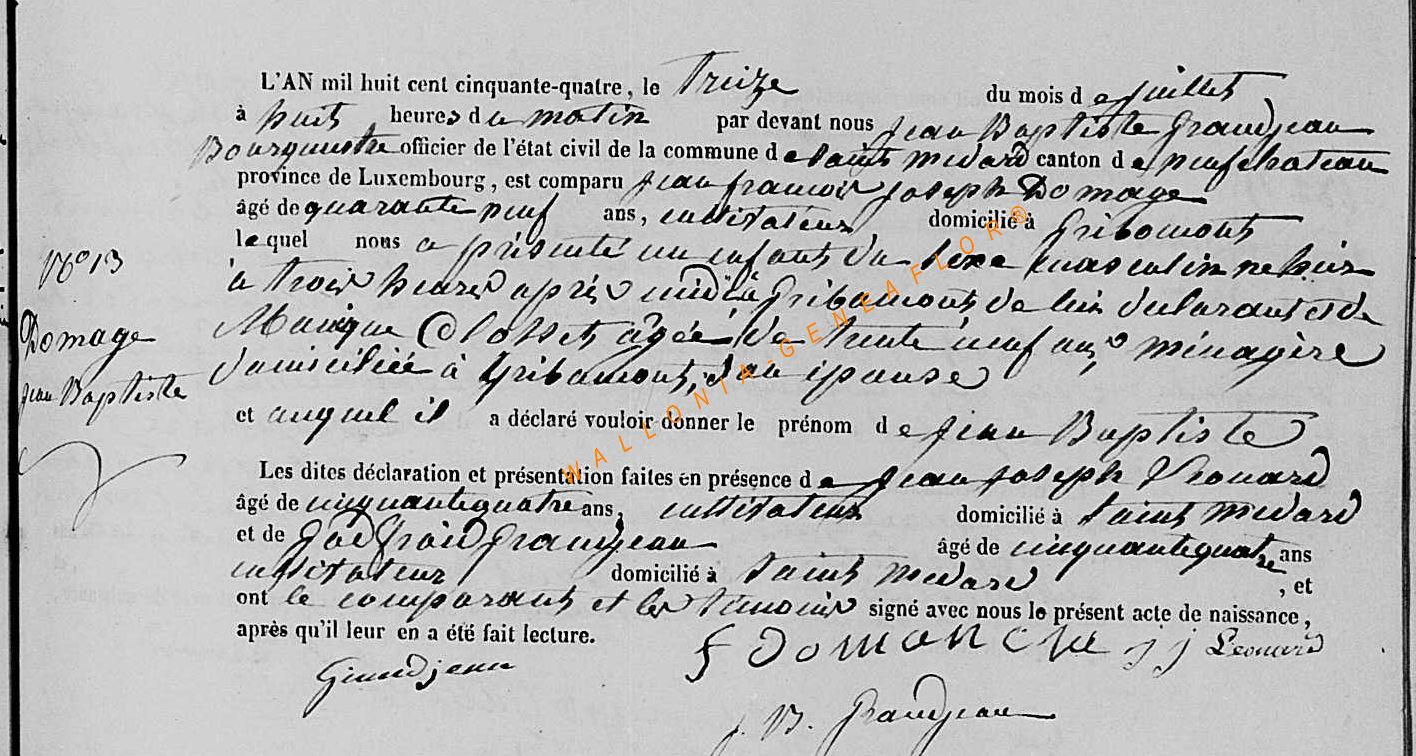 L'AN mil huit cent cinquante-quatre, le treize du mois de juillet
à huit heures du matin par devant nous Jean Baptiste Grandjean
Bourgmestre officier de l'état civil de la commune de Saint Médard canton de Neufchateau
province de Luxembourg, est comparu Jean françois Joseph Domage
âgé de quarante neuf ans, cultivateur domicilié à Gribomont
lequel nous a présenté un enfant du sexe masculin né hier
à trois heures après midi à Gribomont de lui déclarant et de
Monique Closset agée de trente neuf ans ménagère
domiciliée à Gribomont, son épouse
et auquel il a déclaré vouloir donner le prénom de Jean Baptiste
Les dites déclaration et présentation faites en présence de Jean Joseph Léonard
âgé de cinquante quatre ans, cultivateur domicilié à Saint Médard
et de Godfroid Grandjean âgé de cinquante quatre ans
cultivateur domicilié à Saint Médard, et
ont le comparant et les témoins signé avec nous le présent acte de naissance,
après qu'il leur en a été fait lecture.
Grandjean j j Leonard
J. B. Grandjean
N° 13
Domage
Jean Baptiste
WALLONIA-GENEAFLOR®